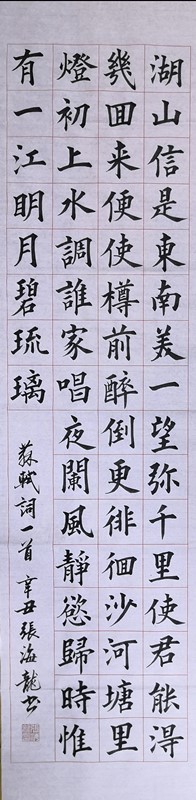 湖山信是東南美一望弥千里使君能得
幾回来便使樽前醉倒更徘徊沙河塘里
燈初上水調誰家唱夜闌風靜慾歸時惟
有一江明月碧琉璃
蘇軾詞一首辛丑張海龍书